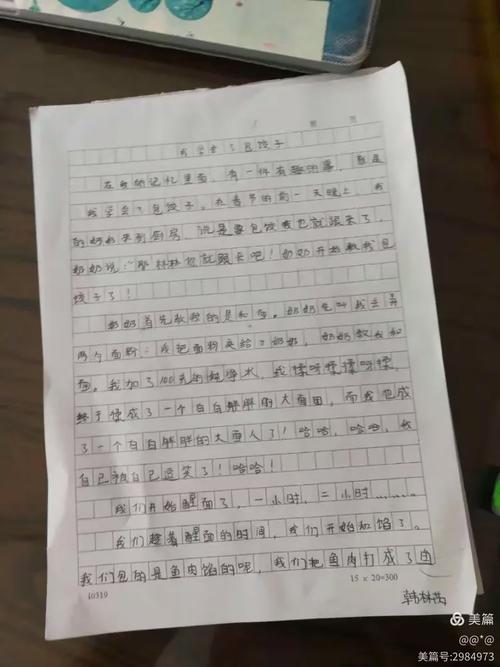 我学会了包饺子
在我的记忆里面，有一件有趣的事，就是
我学会了包饺子。在春节的前一天晚上，我
的奶奶来到厨房，说是要包饺我也就跟来了，
奶奶说："那林林你就跟上吧！奶奶开始教我包
饺子了！
奶奶首先教我的是和面。奶奶先叫我去弄
两个面粉；我把面粉拿给了奶奶，奶奶教我和
面。我加了100克的纯净水，我揉呀揉揉呀揉，
终于揉成了一个白白胖胖的大面团。而我也成
了一个白白胖胖的大面人了！哈哈，哈哈，我
自己被自己逗笑了！哈哈！
我们开始醒面了，一小时，二小时……
我们趁着醒面的时间，我们开始和馅了。
我们包的是鱼肉馅的呢，我们把鱼肉打成了肉
10519
15 x 20=300
韩林芮
美篇
@@*@
美篇号:2984973